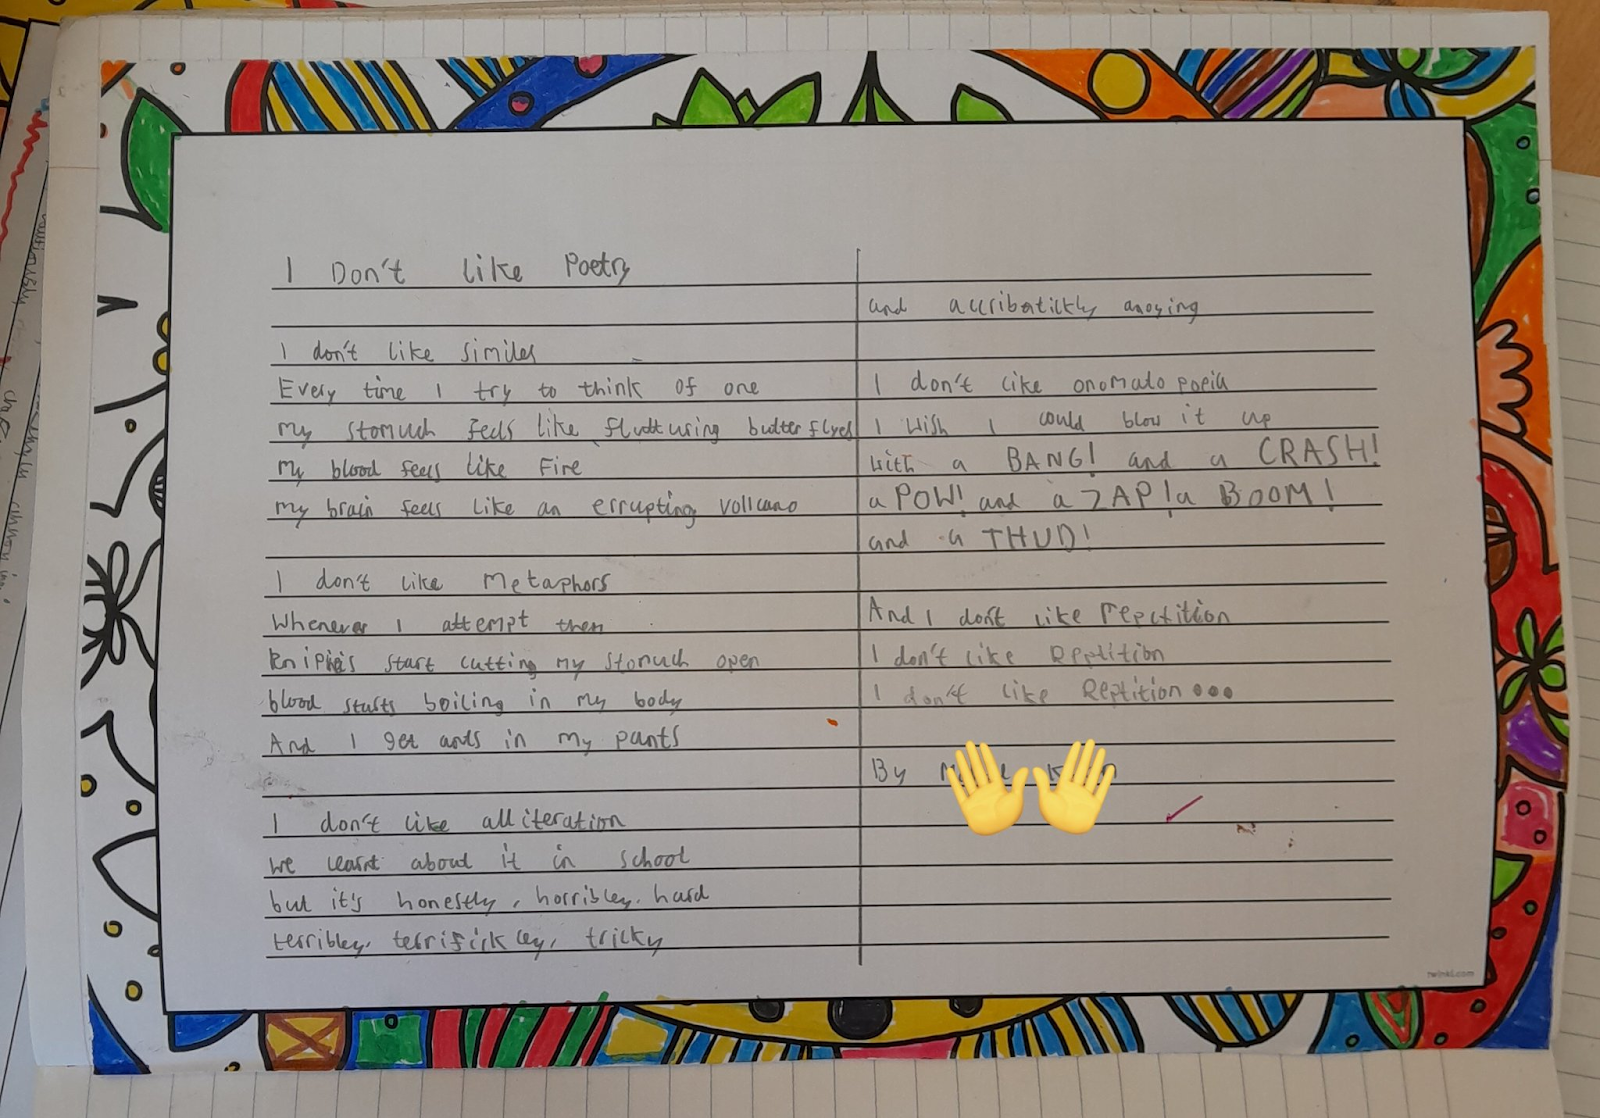 I Don't like Poetry
I don't like similes
Every time I try to think of one
my stomuch feels like fluttusing butter flyes
My blood feels like Fire
my brain feels like an errupting vollcano
I don't like Metaphors
Whenever I attempt them
start cutting my stomuch open
blood starts boiling in my body
And I get ants in my pants
I don't like alliteration
we learnt about it in school
but it's honestly, horribley. hard
terribley, terrifickley, tricky
and accribatickly anoying
I don't like onomatopoeia
I wish I could blow it up
with a BANG! and a CRASH!
a POW! and a ZAP! a BOOM!
and a THUD!
And I don't like repetition
I don't like Reptition
I don't like Reptition...
By
twinkl.com